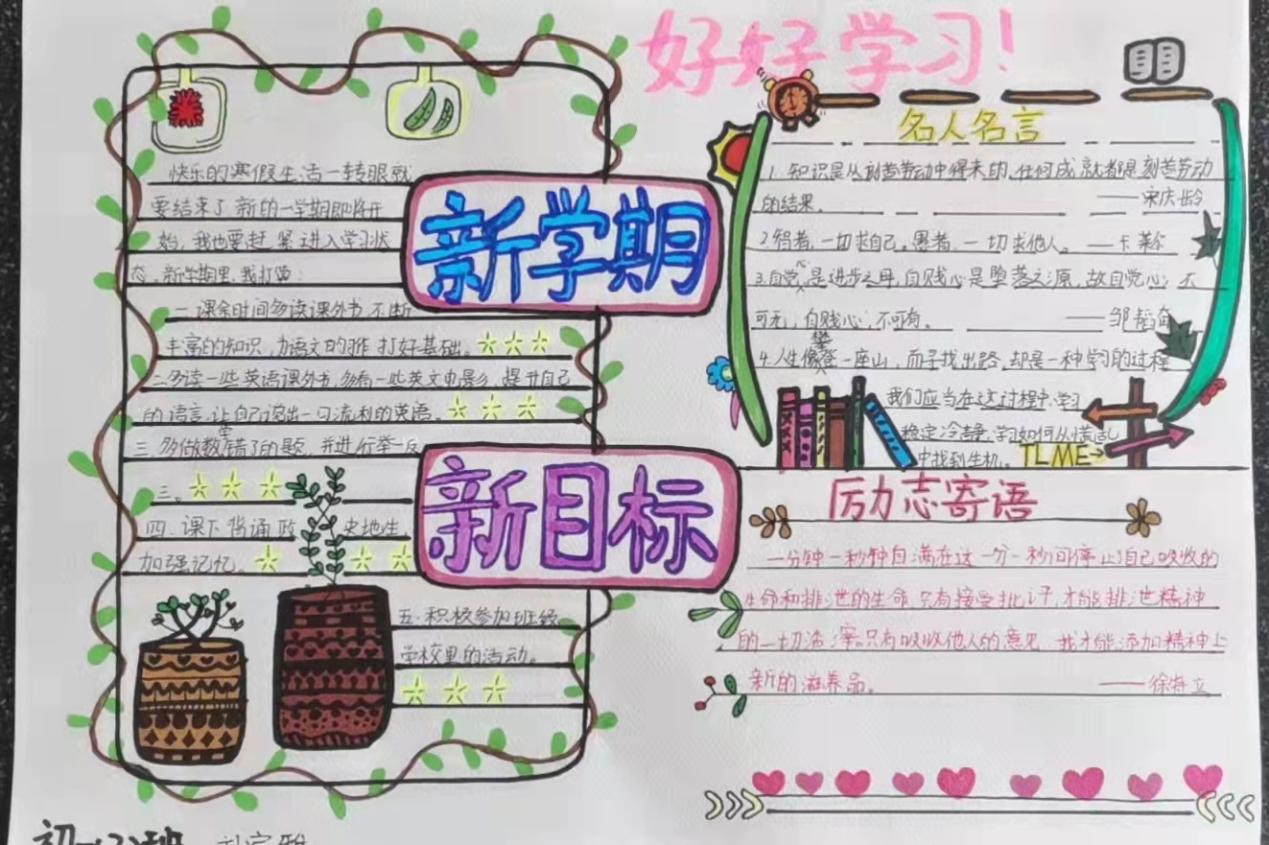 好好学习!
快乐的寒假生活一转眼就
要结束了新的一学期即将开
始,我也要赶紧进入学习状
态。新学期里,我打算:
一课余时间多读课外书不断
丰富的知识,为语文的写作打好基础。
二多读一些英语课外书,多看一些英文电影,提升自己
的语言,让自己说出一口流利的英语。
三多做数学错了的题,并进行举一反
三。
四.课下背诵政 史地生
加强记忆。
五.积极参加班级
学校里的活动。
新学期
新目标
名人名言
1.知识是从刻苦劳动中得来的,任何成就都是刻苦劳动
的结果。 ——宋庆龄
2.智者,一切求自己。愚者,一切求他人。——卡莱尔
3.自觉心是进步之母,自贱心是堕落之源,故自觉心不
可无,自贱心不可有。 ——邹韬奋
4.人生像攀登一座山,而寻找出路,却是一种学习的过程
我们应当在这过程中,学习
稳定冷静,学习如何从慌乱
中找到生机。
TLME
励志寄语
一分钟一秒钟自满在这一分一秒间停止了自己吸收的
生命和排泄的生命只有接受批评,才能排泄精神
的一切渣滓。只有吸收他人的意见我才能添加精神上
新的滋养品。 ——徐特立